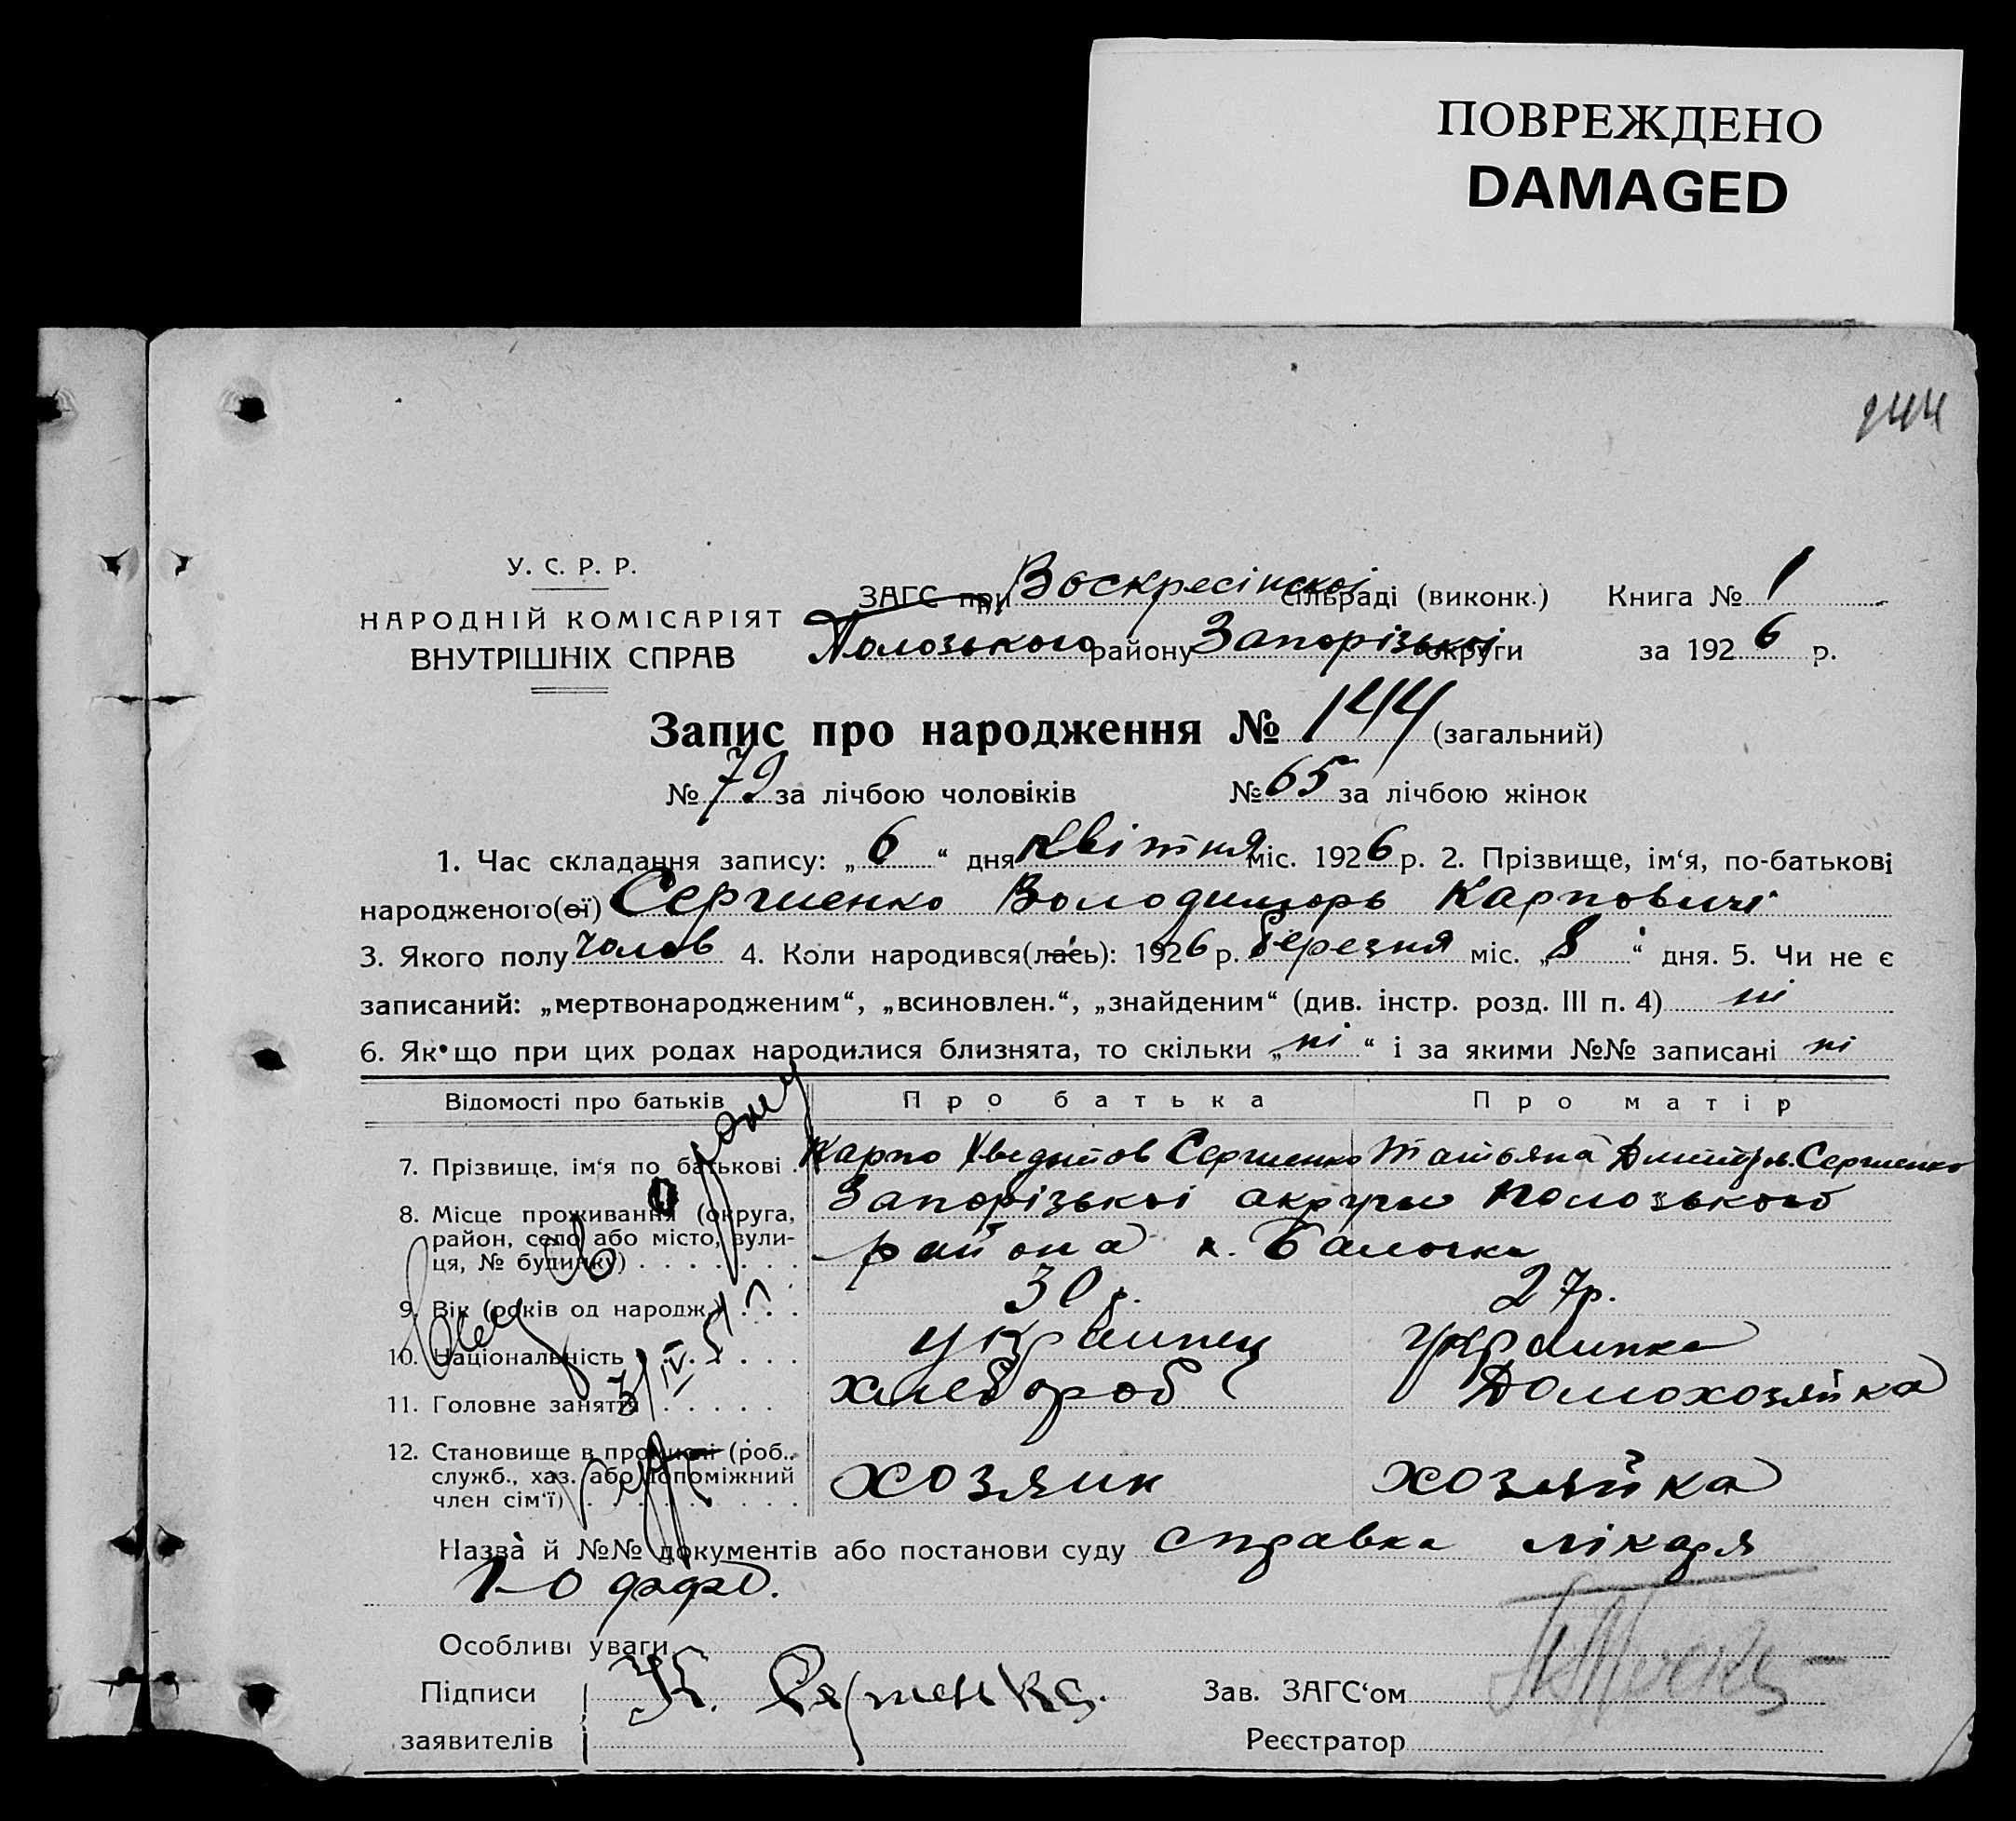 ПОВРЕЖДЕНО
DAMAGED
144
У. С. Р. Р.
НАРОДНІЙ КОМІСАРІЯТ
ВНУТРІШНІХ СПРАВ
ЗАГС при Воскресінскоі сільраді (виконк.) Книга № 1
Полозького району Запорізькоі округи за 1926 р.
Запис про народження № 144 (загальний)
№ 79 за лічбою чоловіків № 65 за лічбою жінок
1. Час складання запису: „6“ дня Квітня міс. 1926 р. 2. Прізвище, ім‘я, по-батькові
народженого(ої) Сергиенко Володимирь Карпович
3. Якого полу чолов 4. Коли народився(лась): 1926 р. березня міс. „8“ дня. 5. Чи не є
записаний: „мертвонародженим“, „всиновлен.“, „знайденим“ (див. інстр. розд. III п. 4) ні
6. Якщо при цих родах народилися близнята, то скільки „ні“ і за якими №№ записані ні
Відомості про батьків Про батька Про матір
7. Прізвище, ім‘я по батькові . Карпо Сергиенко Татьяна Дмитр. Сергиенко
8. Місце проживання (округа, район, село або місто, вули-ця, № будинку) Запорізькоі округи Полозького
района х. Балочки
9. Вік (років од народж.) 30 р. 27 р.
10. Національність украинец украинка
11. Головне заняття хлебороб Домохозяйка
12. Становище в промислі (роб., служб., хаз. або допоміжний член сім‘ї) хозяин хозяйка
Назва й №№ документів або постанови суду справка лікаря
Особливі уваги
Підписи К. Сергиенко Зав. ЗАГС‘ом
заявителів Реєстратор